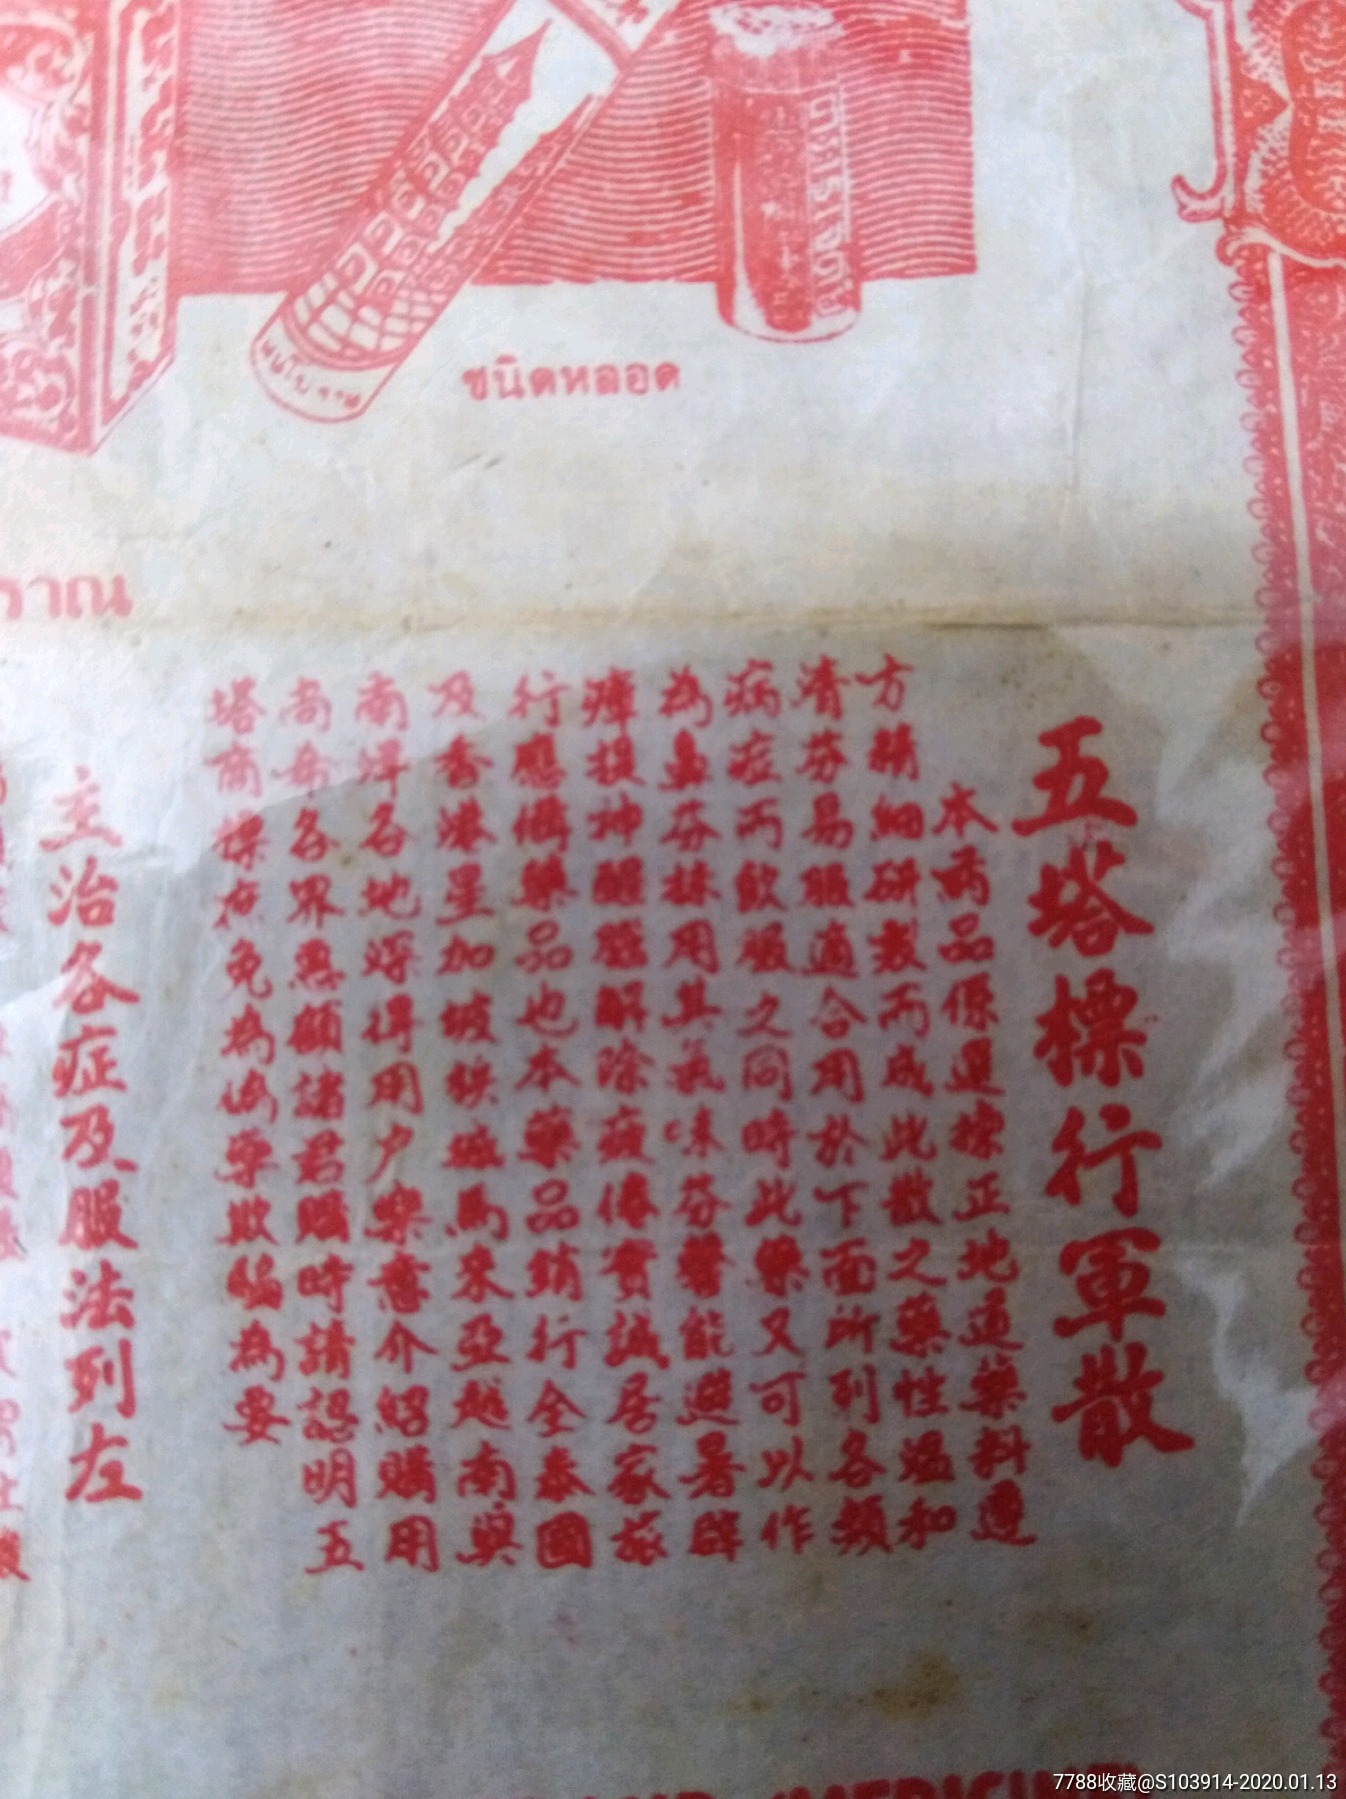 ชนิดหลอด
ราณ
五塔標行軍散
本藥品係選擇正地道藥料遵
方精細研製而成此散之藥性溫和
清芬易服適合用於下面所列各類
病症而飲服之同時此藥又可以作
為鼻芬抹用其氣味芬馨能避暑辟
瘴提神醒腦解除疲倦實誠居家旅
行應備藥品也本藥品銷行全泰國
及香港星加坡檳城馬來亞越南與
南洋各地深得用户樂意介紹購用
尚希各界惠顧諸君購時請認明五
塔商標庶免為偽藥欺騙為要
主治各症及服法列左
7788收藏@S103914-2020.01.13